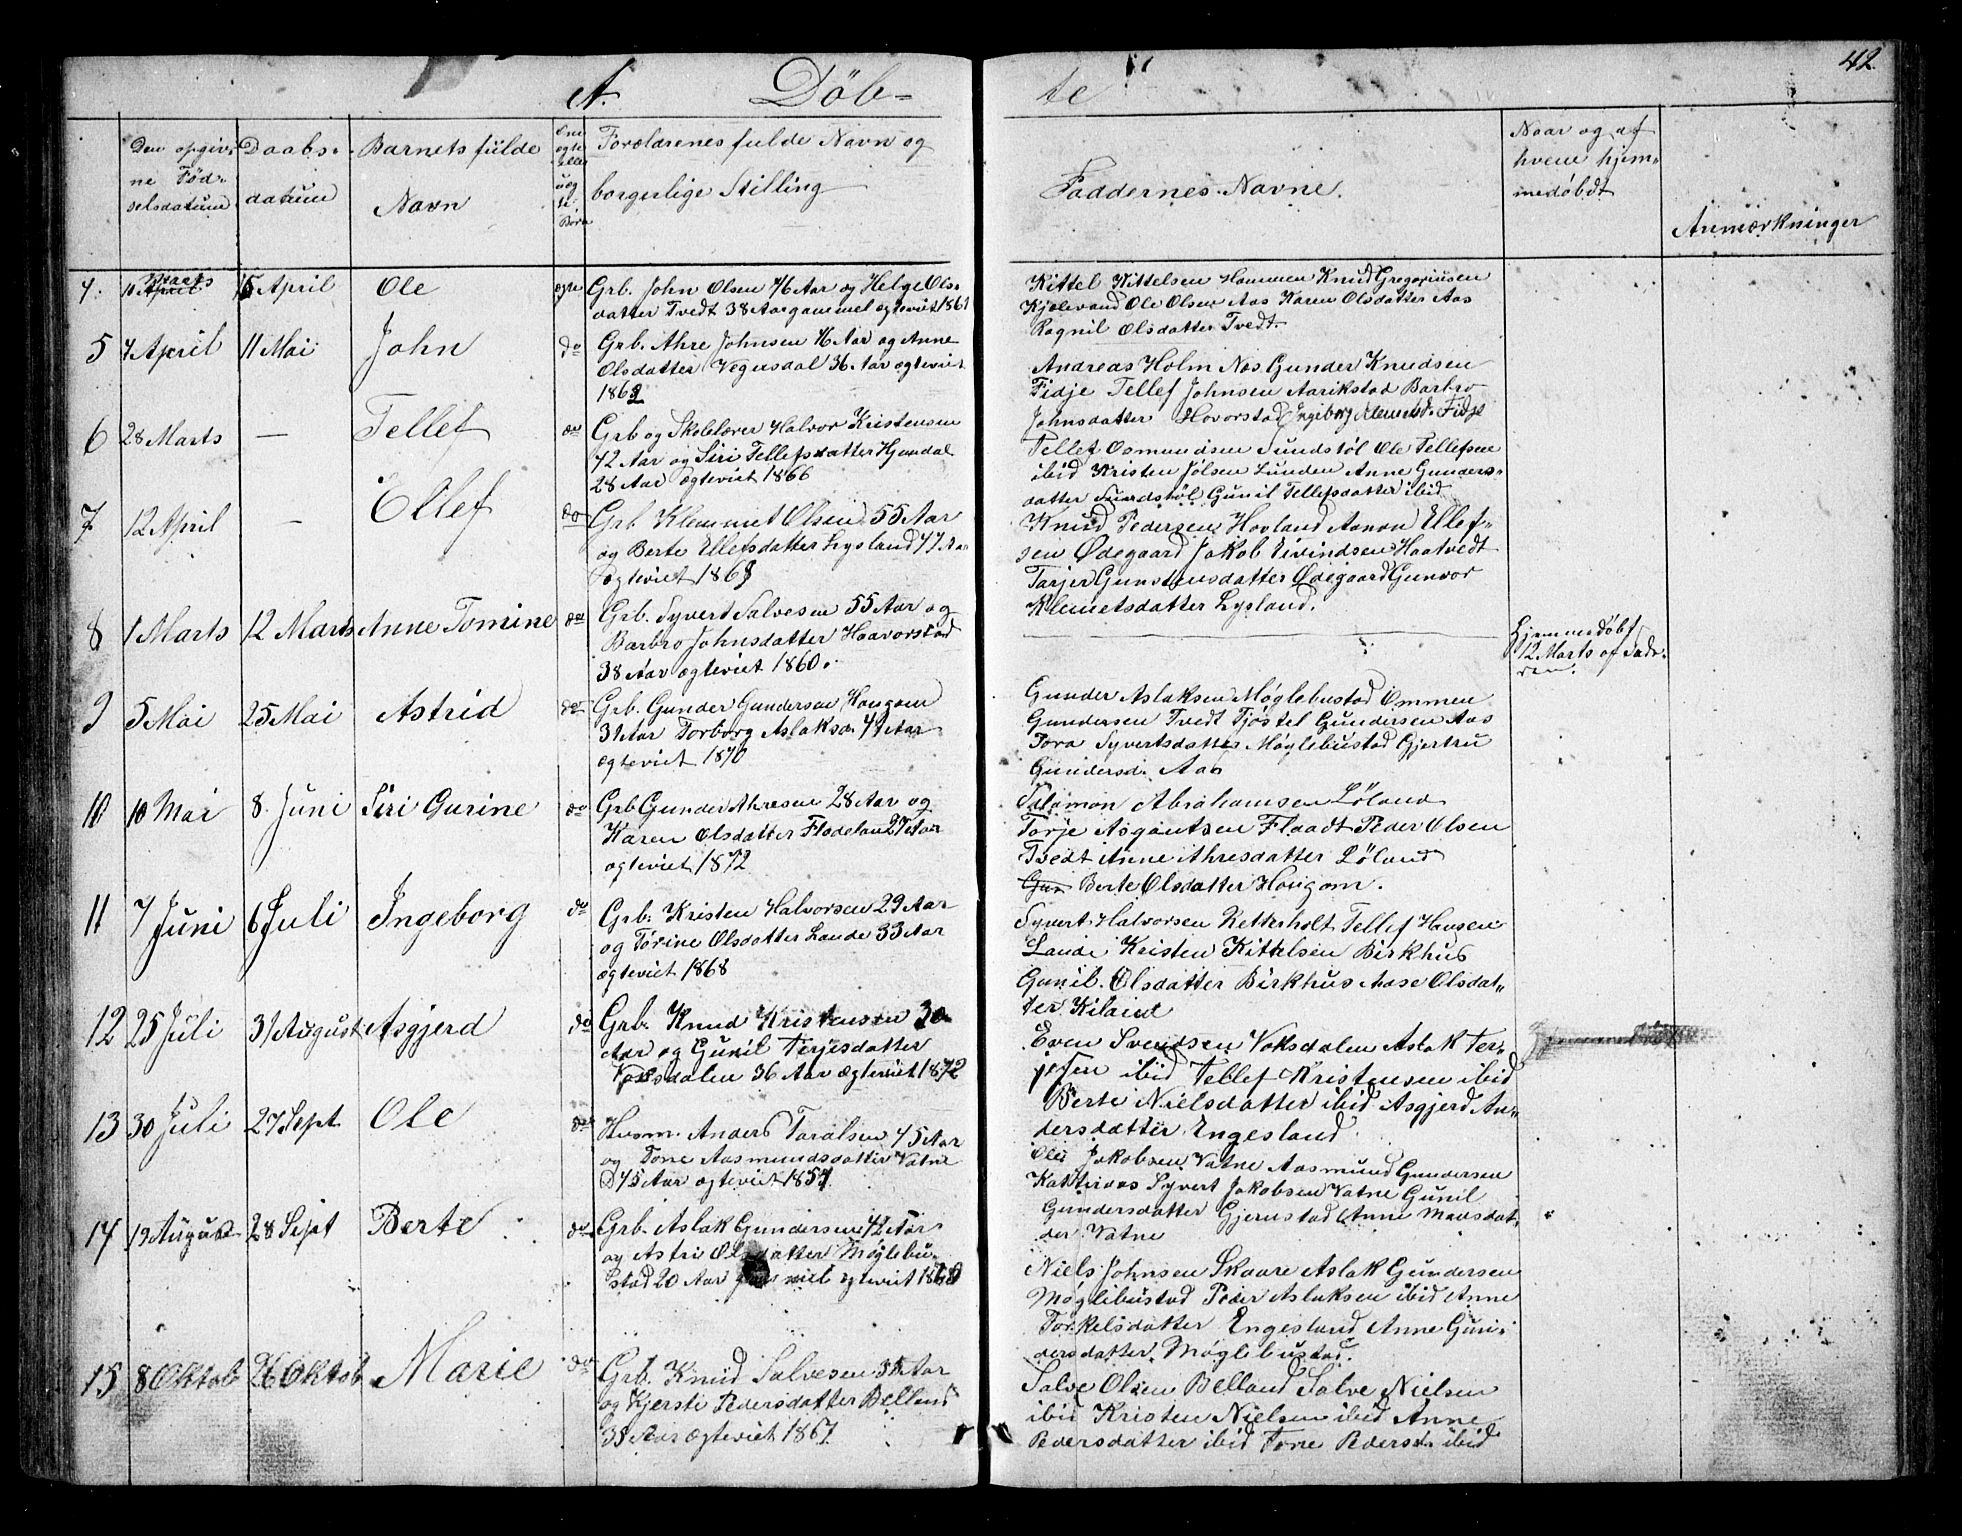 42
A. Döb- te
Den opgiv-
ne Fød-
selsdatum
Daabs-
datum
Barnets fulde
Navn
Forældrenes fulde Navn og
borgerlige Stilling
Faddernes Navne.
Naar og af
hvem hjem-
medøbdt
Anmærkninger
4. 11 Marts April 15 April Ole
Grb. John Olsen 46 Aar og Helge Ols-
datter Tvedt 38 Aar gammel ægteviet 1861
Kittel Kittelsen Hommen Knud Gregoriusen
Kjølevand Ole Olsen Aas Karen Olsdatter Aas
Ragnil Olsdatter Tvedt.
5 4 April 11 Mai John do
Grb. Ahre Johnsen 46 Aar og Anne
Olsdatter Vegusdal 36 Aar ægteviet
1862
Andreas Holm Nos Gunder Knudsen
Fidje Tellef Johnsen Aarikstad Barbro
Johnsdatter Hovorstad Ingeborg Klemetsd. Fidje
6 28 Marts — Tellef
Grb og Skolelærer Halvor Kristensen
42 Aar og Siri Tellefsdatter Hjemdal
28 Aar Ægteviet 1866
Tellef Osmundsen Sundstøl Ole Tellefsen
ibid Kristen Jølsen Lunden Anne Gunders-
datter Sundstøl Gunil Tellefsdatter ibid
7 12 April — Ellef do
Grb Klemmet Olsen 55 Aar
og Berte Ellefsdatter Lysland 47 Aar
ægteviet 1863
Knud Pedersen Hovland Aanon Ellef-
sen Ødegaard Jakob Eivindsen Haatvedt
Tarjer Gunstensdatter Ødegaard Gunvor
Klemetsdatter Lysland.
8 1 Marts 12 Marts Anne Tomine do
Grb. Syvert Salvesen 55 Aar og
Barbro Johnsdatter Haavorstad
38 Aar ægteviet 1860.
Hjemmedøbt
12 Marts af Fade-
ren.
9 5 Mai 25 Mai Astrid do
Grb. Gunder Gundersen Hougom
31 Aar Torborg Aslaksd. 41 Aar
ægteviet 1870
Gunder Aslaksen Møglebustad Ommen
Gundersen Tvedt Tjøstel Gundersen Aas
Tora Syvertsdatter Møglebustad Gjertru
Gundersd. Aas
10 10 Mai 8. Juni Siri Gurine do
Grb Gunder Ahresen 28 Aar og
Karen Olsdatter Flodelan 27 Aar
ægteviet 1872
Salomon Abrahamsen Løland
Torje Asgautsen Flaadt Peder Olsen
Tvedt Anne Ahresdatter Løland
Gun Berte Olsdatter Hougom.
11 7 Juni 6 Juli Ingeborg do
Grb: Kristen Halvorsen 29 Aar
og Torine Olsdatter Lande 33 Aar
ægteviet 1868
Syvert Halvorsen Retterholt Tellef Hansen
Lande Kristen Kittelsen Birkhus
Gunil. Olsdatter Birkhus Aase Olsdat-
ter Kiland
12 25 Juli 31 August Asgjerd do
Grb. Knud Kristensen 30
Aar og Gunil Terjesdatter
Voksdalen 36 Aar ægteviet 1872
Even Svendsen Voksdalen Aslak Ter-
jesen ibid Tellef Kristensen ibid
Berte Nielsdatter ibid Asgjerd An-
dersdatter Engesland
13 30 Juli 27 Sept Ole do
Husm. Anders Taralsen 45 Aar
og Tone Aasmundsdatter Vatne
45 Aar ægteviet 1857
Ole Jakobsen Vatne Aasmund Gundersen
Katteraas Syvert Jakobsen Vatne Gunil
Gundersdatter Gjerustad Anne Mausdat-
der Vatne
14 19 August 28 Sept Berte do
Grb. Aslak Gundersen 42 Aar
og Astri Olsdatter Møglebu-
stad 20 Aar gammel ægteviet
Niels Johnsen Skaare Aslak Gundersen
Møglebustad Peder Aslaksen ibid Anne
Torkelsdatter Engesland Anne Gun-
dersdatter Møglebustad.
15 8 Oktob 26 Oktob Marie do
Grb. Knud Salvesen 35 Aar
og Kjersti Pedersdatter Belland
35 Aar ægteviet 1867
Salve Olsen Belland Salve Nielsen
ibid Kristen Nielsen ibid Anne
Pedersdatter ibid Tone Pedersd. ibid